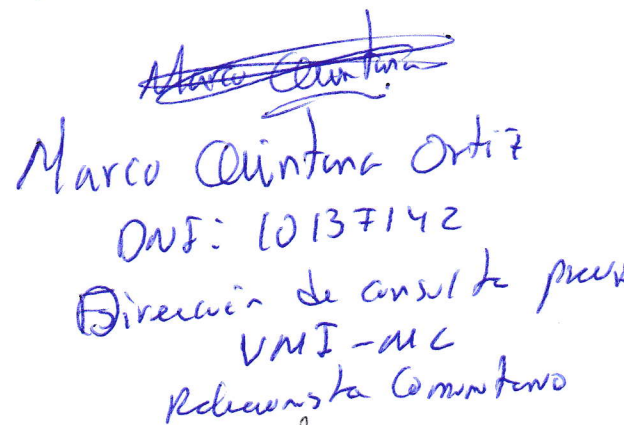 Marco Quintana
Marco Quintana Ortiz
DNI: 10137142
Dirección de consulta previa
VMI-MC
Relacionista Comunitario